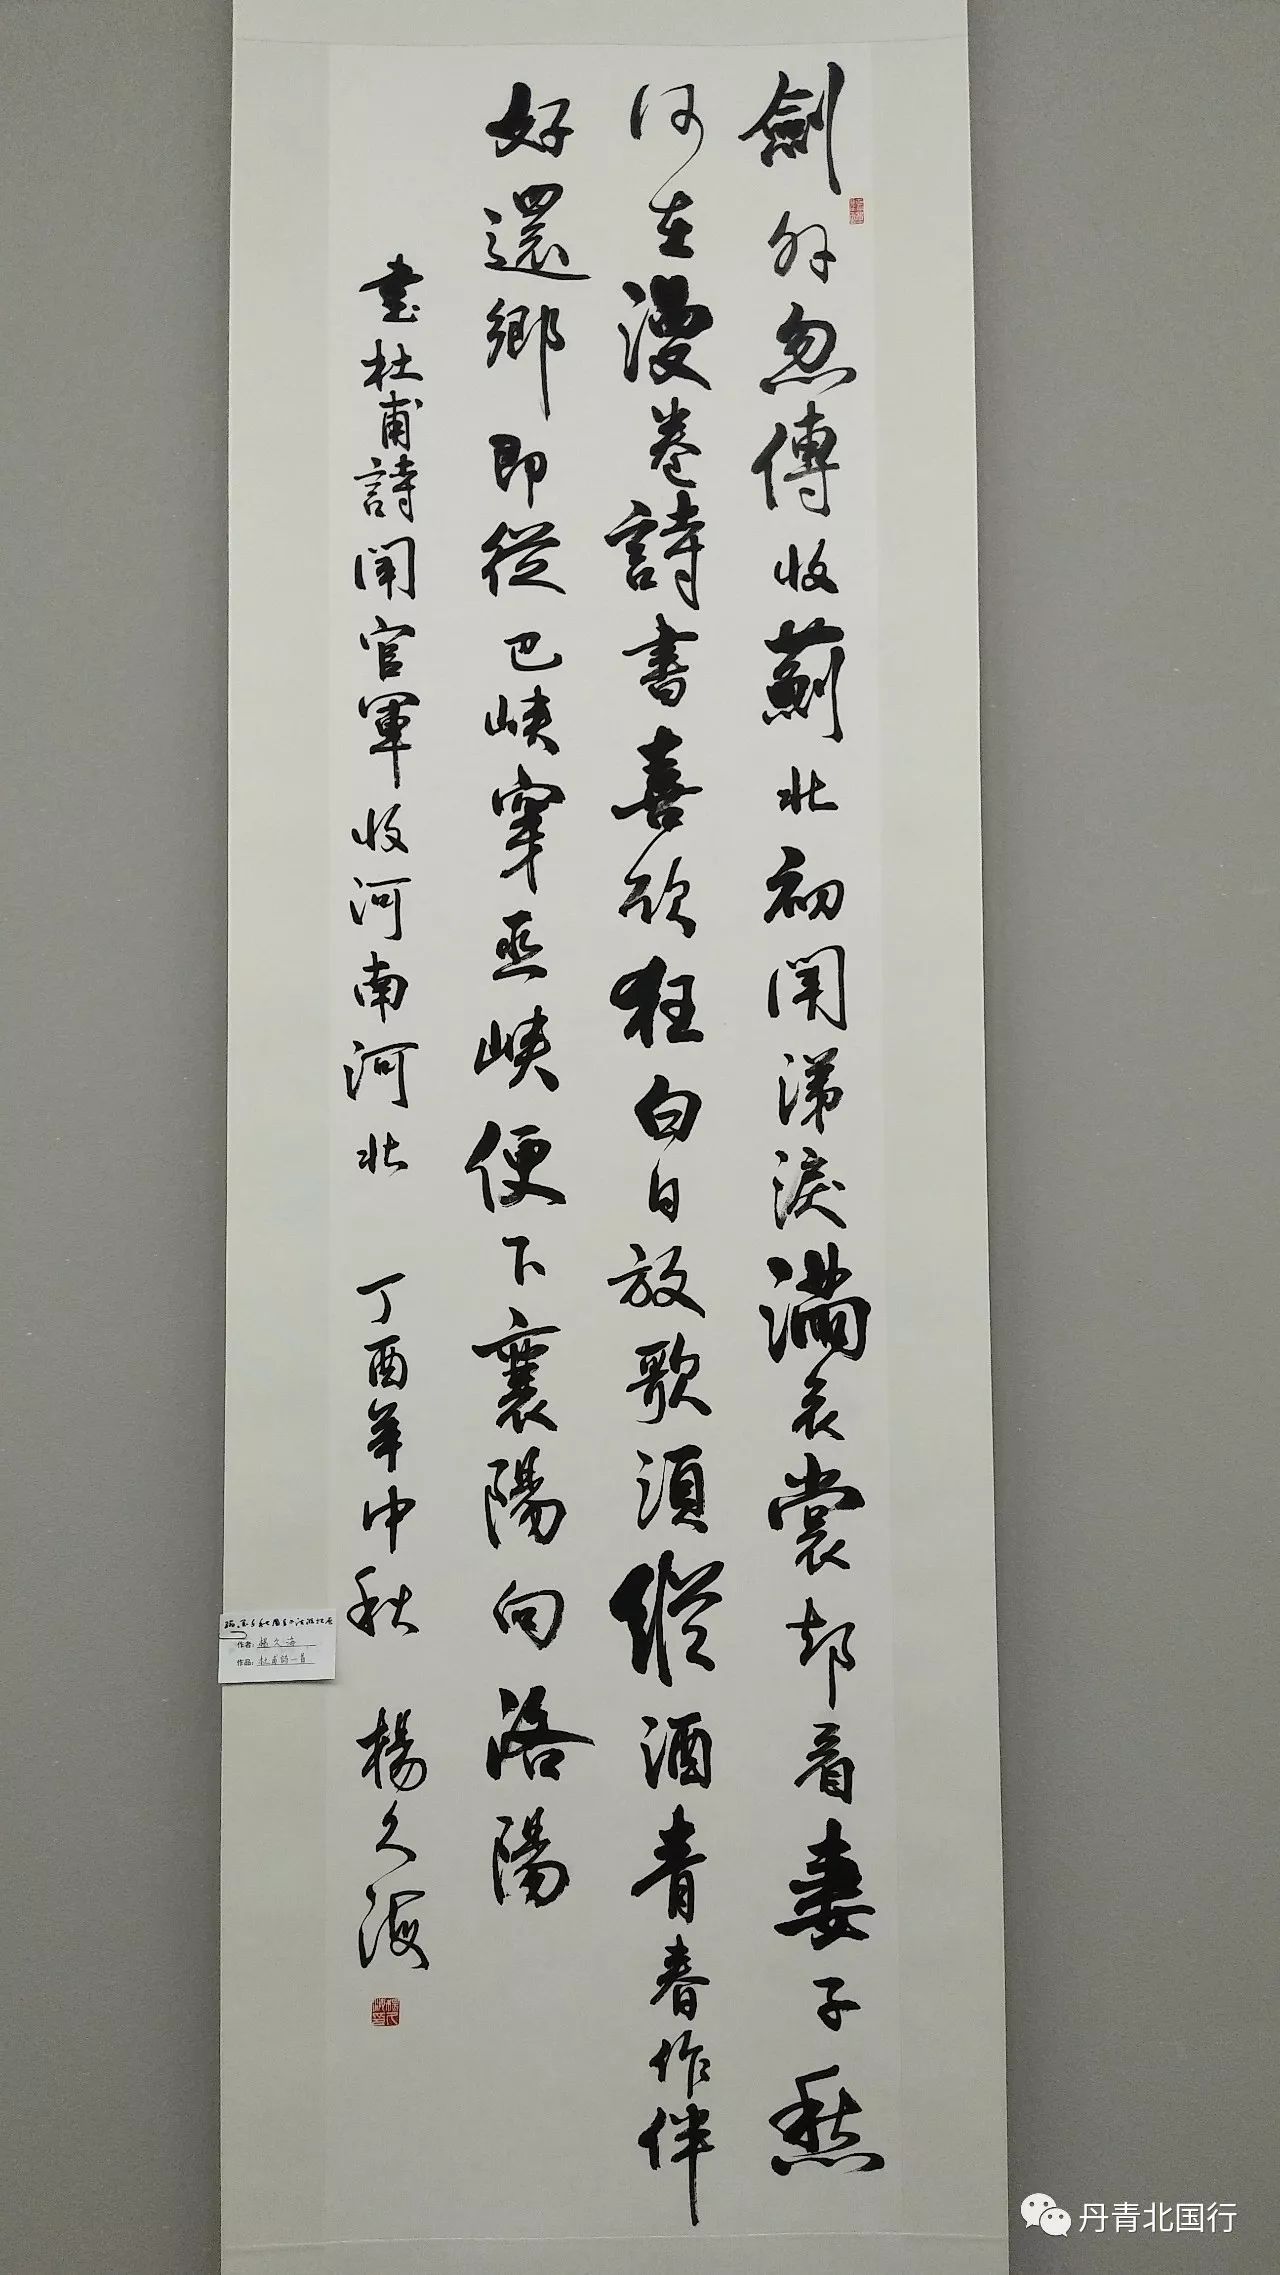 劍外忽傳收薊北初聞涕淚滿衣裳却看妻子愁
何在漫卷詩書喜欲狂白日放歌須縱酒青春作伴
好還鄉即從巴峽穿巫峽便下襄陽向洛陽
書杜甫詩聞官軍收河南河北 丁酉年中秋 楊久海
作者：楊久海
作品：杜甫詩一首
丹青北国行